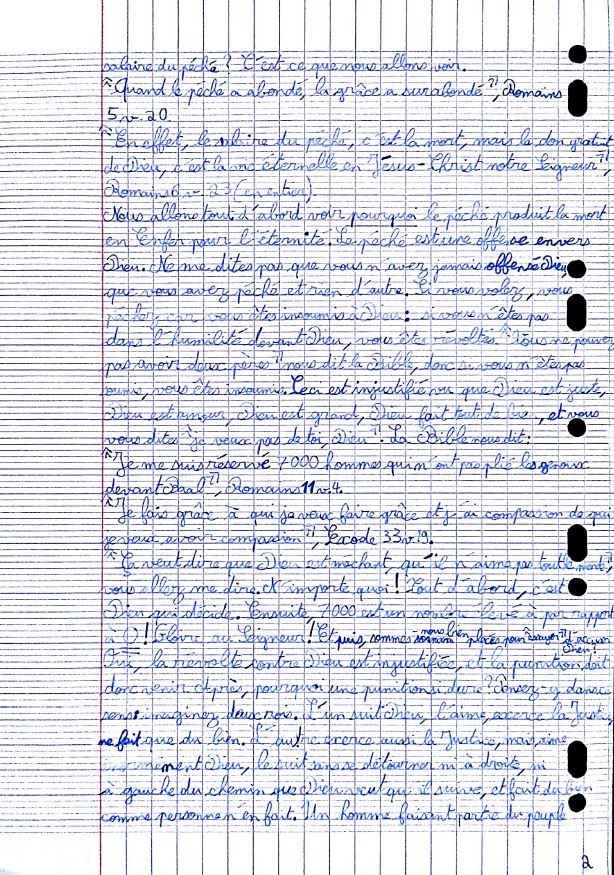 salaire du péché ? C'est ce que nous allons voir.
"Quand le péché a abondé, la grâce a surabondé", Romains
5 v. 20.
"En effet, le salaire du péché, c'est la mort, mais le don gratuit
de Dieu, c'est la vie éternelle en Jésus-Christ notre Seigneur",
Romains 6 v. 23 (en entier).
Nous allons tout d'abord voir pourquoi le péché produit la mort
en Enfer pour l'éternité. Le péché est une offense envers
Dieu. Ne me dites pas que vous n'avez jamais offensé Dieu,
que vous avez péché et rien d'autre. Si vous volez, vous
péchez car vous êtes insoumis à Dieu : si vous n'êtes pas
dans l'humilité devant Dieu, vous êtes révoltés. "Vous ne pouvez
pas avoir deux pères" nous dit la Bible, donc si vous n'êtes pas
soumis, vous êtes insoumis. Ceci est injustifié vu que Dieu est juste,
Dieu est amour, Dieu est grand, Dieu fait tout de bien, et vous
vous dites "je veux pas de toi, Dieu". La Bible nous dit :
"Je me suis réservé 7000 hommes qui n'ont pas plié les genoux
devant Baal", Romains 11 v. 4.
"Je fais grâce à qui je veux faire grâce et j'ai compassion de qui
je veux avoir compassion", Exode 33 v. 19.
"Ça veut dire que Dieu est méchant, qu'il n'aime pas tout le monde",
vous allez me dire. N'importe quoi ! Tout d'abord, c'est
Dieu qui décide. Ensuite, 7000 est un nombre élevé à par rapport
à 0 ! Gloire au Seigneur ! Et puis, sommes nous bien placés pour d'accuser Dieu !
Oui, la révolte contre Dieu est injustifiée, et la punition doit
donc venir. Après, pourquoi une punition si dure ? Pensez-y dans ce
sens : imaginez deux rois. L'un suit Dieu, l'aime, exerce la Justice,
ne fait que du bien. L'autre exerce aussi la Justice, mais aime
énormément Dieu, le suit sans se détourner ni à droite, ni
à gauche du chemin que Dieu veut qu'il suive, et fait du bien
comme personne n'en fait. Un homme faisant partie du peuple
2